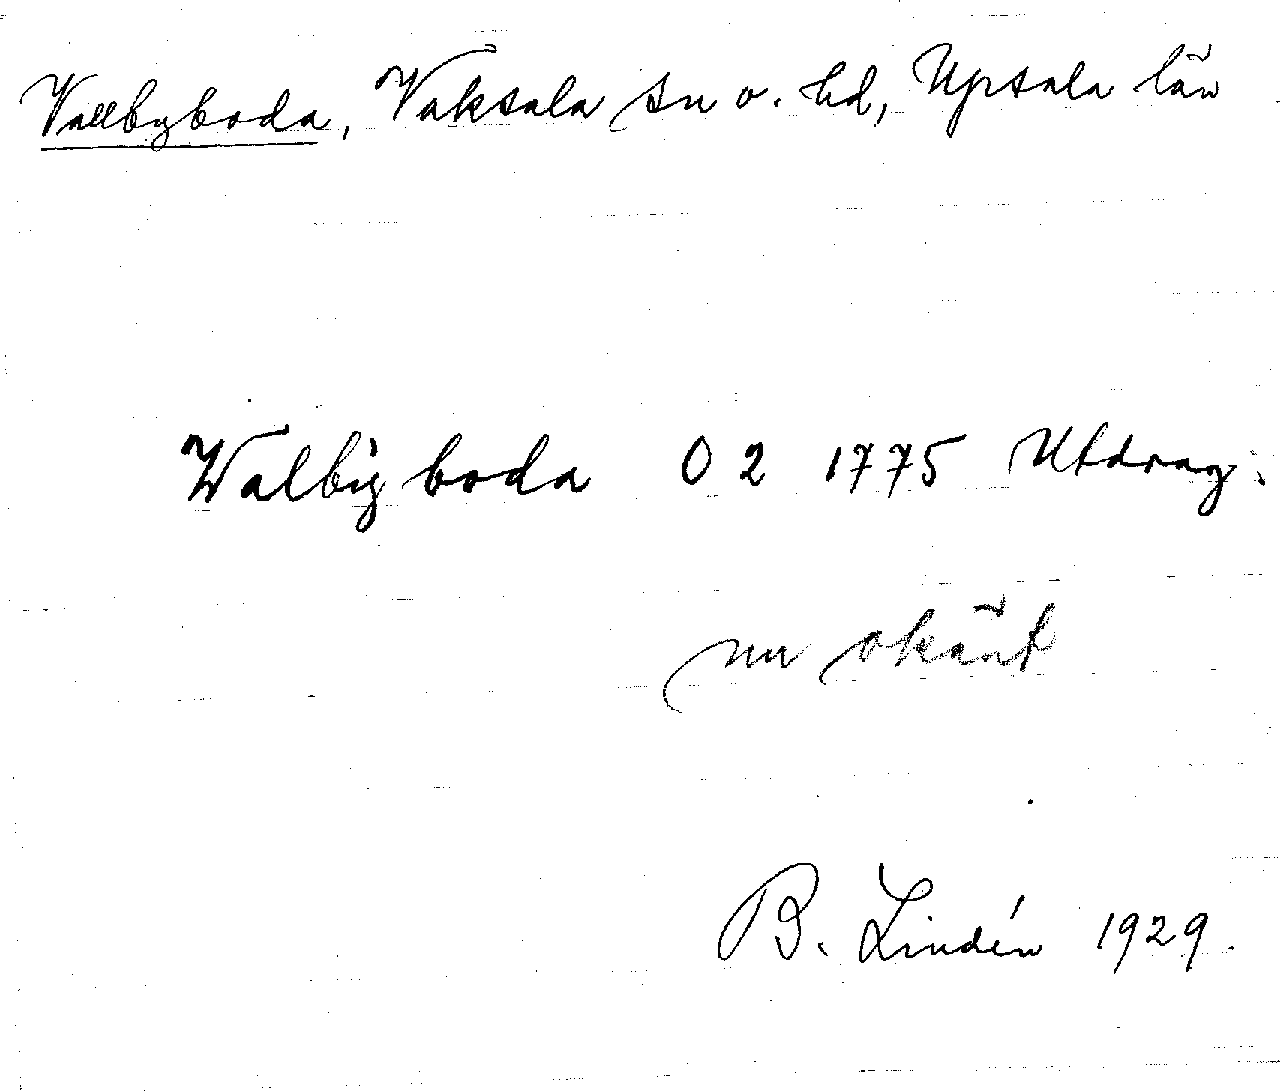 Vallbyboda, Vaksala sn o. hd, Upsala län
Walbijboda 02 1775 Utdrag.
nu okänt
B. Lindén 1929.